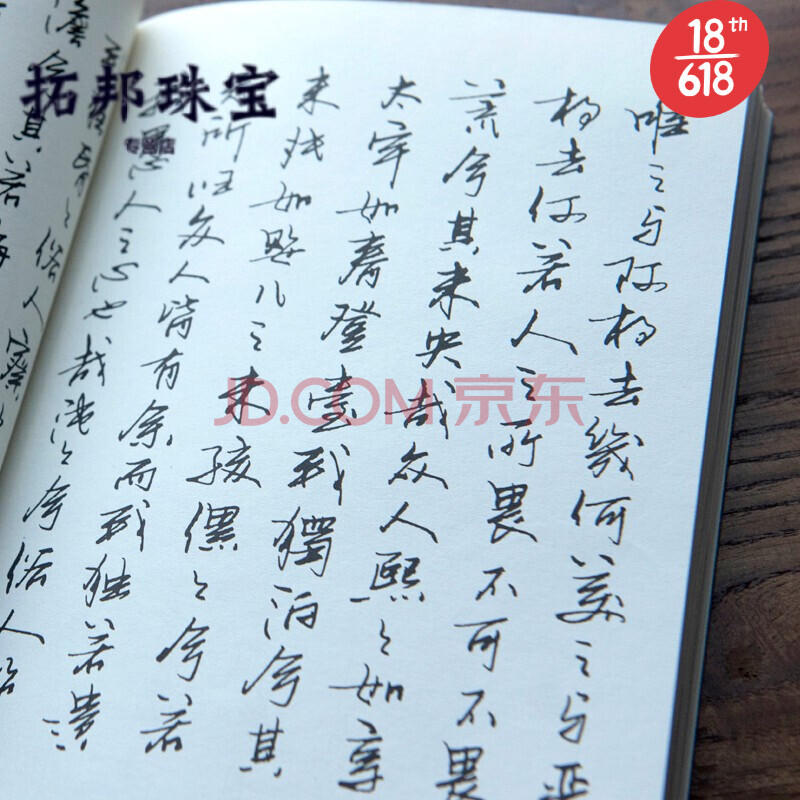 18th
618
拓邦珠宝
专营店
JD.COM 京东
唯之与阿相去幾何美之与
相去何若人之所畏不可不畏
荒兮其未央哉众人熙々如享
太牢如春登臺我獨泊兮其
未兆如嬰儿之未孩儽々兮若
所归众人皆有余而我独若遗
我愚人之心也哉沌々兮俗人昭
俗人察々
澹兮其若海